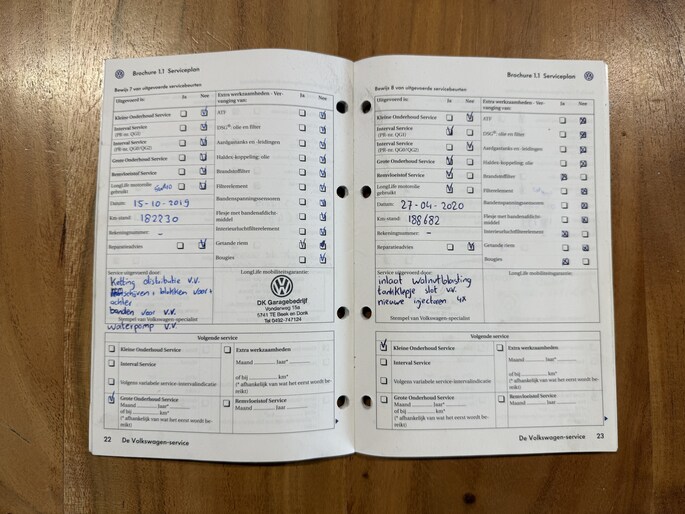 Brochure 1.1 Serviceplan
Bewijs 7 van uitgevoerde servicebeurten
Uitgevoerd is: Ja Nee
Kleine Onderhoud Service
Interval Service
(PR-nr. QG1)
Interval Service
(PR-nr. QG0/QG2)
Grote Onderhoud Service
Remvloeistof Service
LongLife motorolie
gebruikt 5w40
Datum: 15-10-2019
Km-stand: 182230
Rekeningnummer: -
Reparatieadvies
Extra werkzaamheden - Ver-
vanging van: Ja Nee
ATF
DSG®: olie en filter
Aardgastanks en -leidingen
Haldex-koppeling: olie
Brandstoffilter
Filterelement
Bandenspanningssensoren
Flesje met bandenafdicht-
middel
Interieurluchtfilterelement
Getande riem
Bougies
Service uitgevoerd door:
Ketting distributie v.v.
schijven + blokken voor +
achter
banden voor v.v.
waterpomp v.v.
Stempel van Volkswagen-specialist
LongLife mobiliteitsgarantie:
DK Garagebedrijf
Vonderweg 15a
5741 TE Beek en Donk
Tel 0492-747124
Volgende service
Kleine Onderhoud Service
Interval Service
Volgens variabele service-intervalindicatie
Grote Onderhoud Service
Maand Jaar*
of bij km*
(* afhankelijk van wat het eerst wordt be-
reikt)
Extra werkzaamheden
Maand Jaar*
of bij km*
(* afhankelijk van wat het eerst wordt be-
reikt)
Remvloeistof Service
Maand Jaar
22 De Volkswagen-service
Brochure 1.1 Serviceplan
Bewijs 8 van uitgevoerde servicebeurten
Uitgevoerd is: Ja Nee
Kleine Onderhoud Service
Interval Service
(PR-nr. QG1)
Interval Service
(PR-nr. QG0/QG2)
Grote Onderhoud Service
Remvloeistof Service
LongLife motorolie
gebruikt
Datum: 27-04-2020
Km-stand: 188682
Rekeningnummer: -
Reparatieadvies
Extra werkzaamheden - Ver-
vanging van: Ja Nee
ATF
DSG®: olie en filter
Aardgastanks en -leidingen
Haldex-koppeling: olie
Brandstoffilter
Filterelement
Bandenspanningssensoren
Flesje met bandenafdicht-
middel
Interieurluchtfilterelement
Getande riem
Bougies
Service uitgevoerd door:
inlaat Walnutblasting
tankklepje slot v.v.
nieuwe injectoren 4x
Stempel van Volkswagen-specialist
LongLife mobiliteitsgarantie:
Volgende service
Kleine Onderhoud Service
Interval Service
Volgens variabele service-intervalindicatie
Grote Onderhoud Service
Maand Jaar*
of bij km*
(* afhankelijk van wat het eerst wordt be-
reikt)
Extra werkzaamheden
Maand Jaar*
of bij km*
(* afhankelijk van wat het eerst wordt be-
reikt)
Remvloeistof Service
Maand Jaar
De Volkswagen-service 23